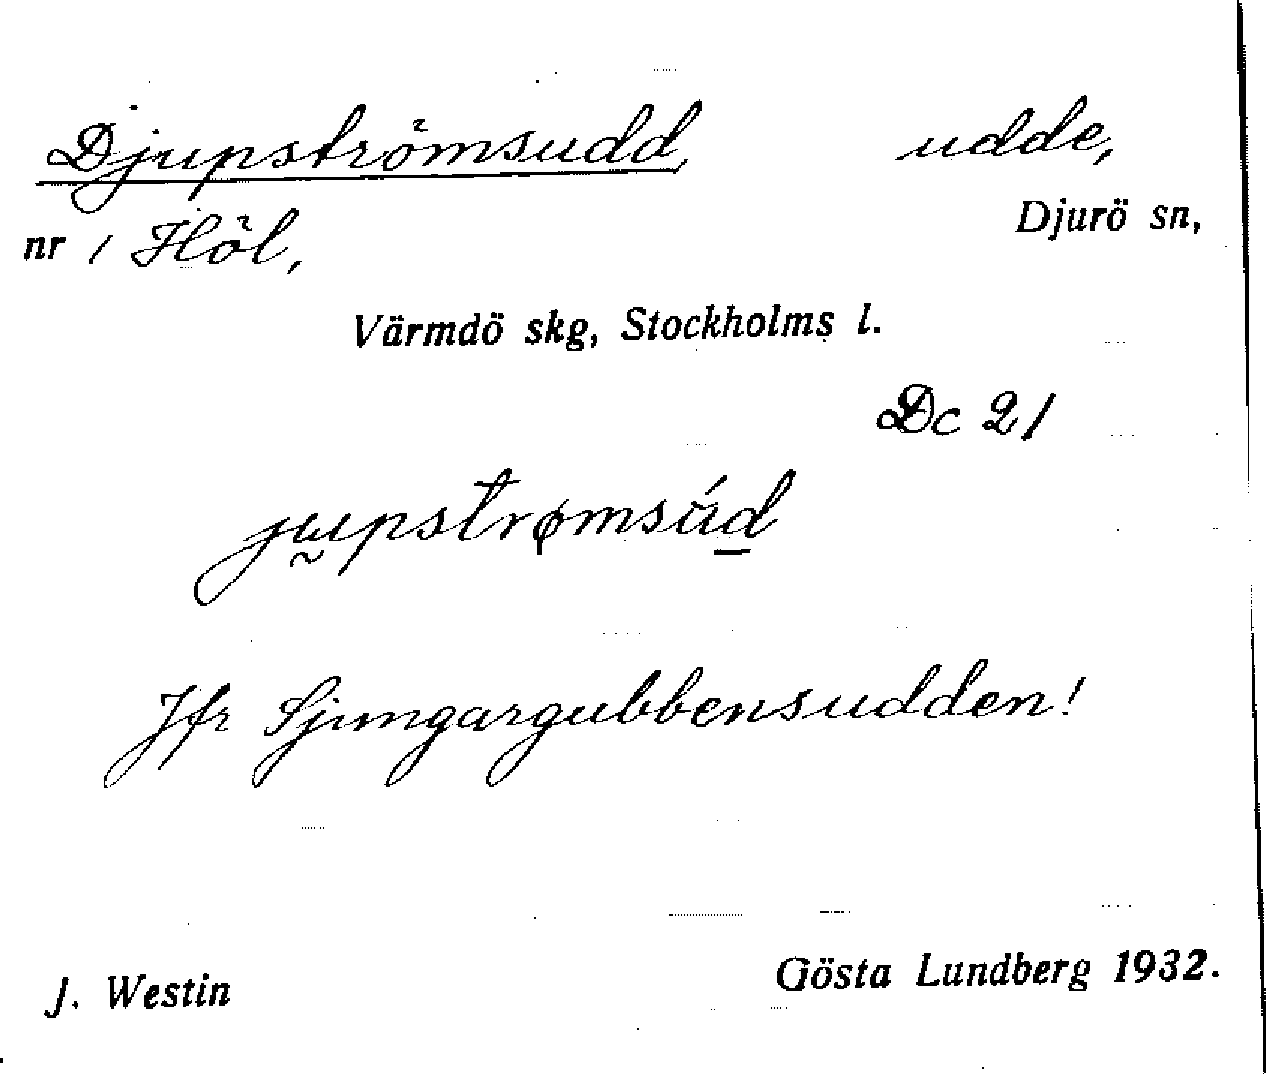 Djupströmsudd, udde,
nr 1 Höl, Djurö sn,
Värmdö skg, Stockholms l.
Dc 21
jupstrømsúd
Jfr Sjungargubbensudden!
J. Westin Gösta Lundberg 1932.